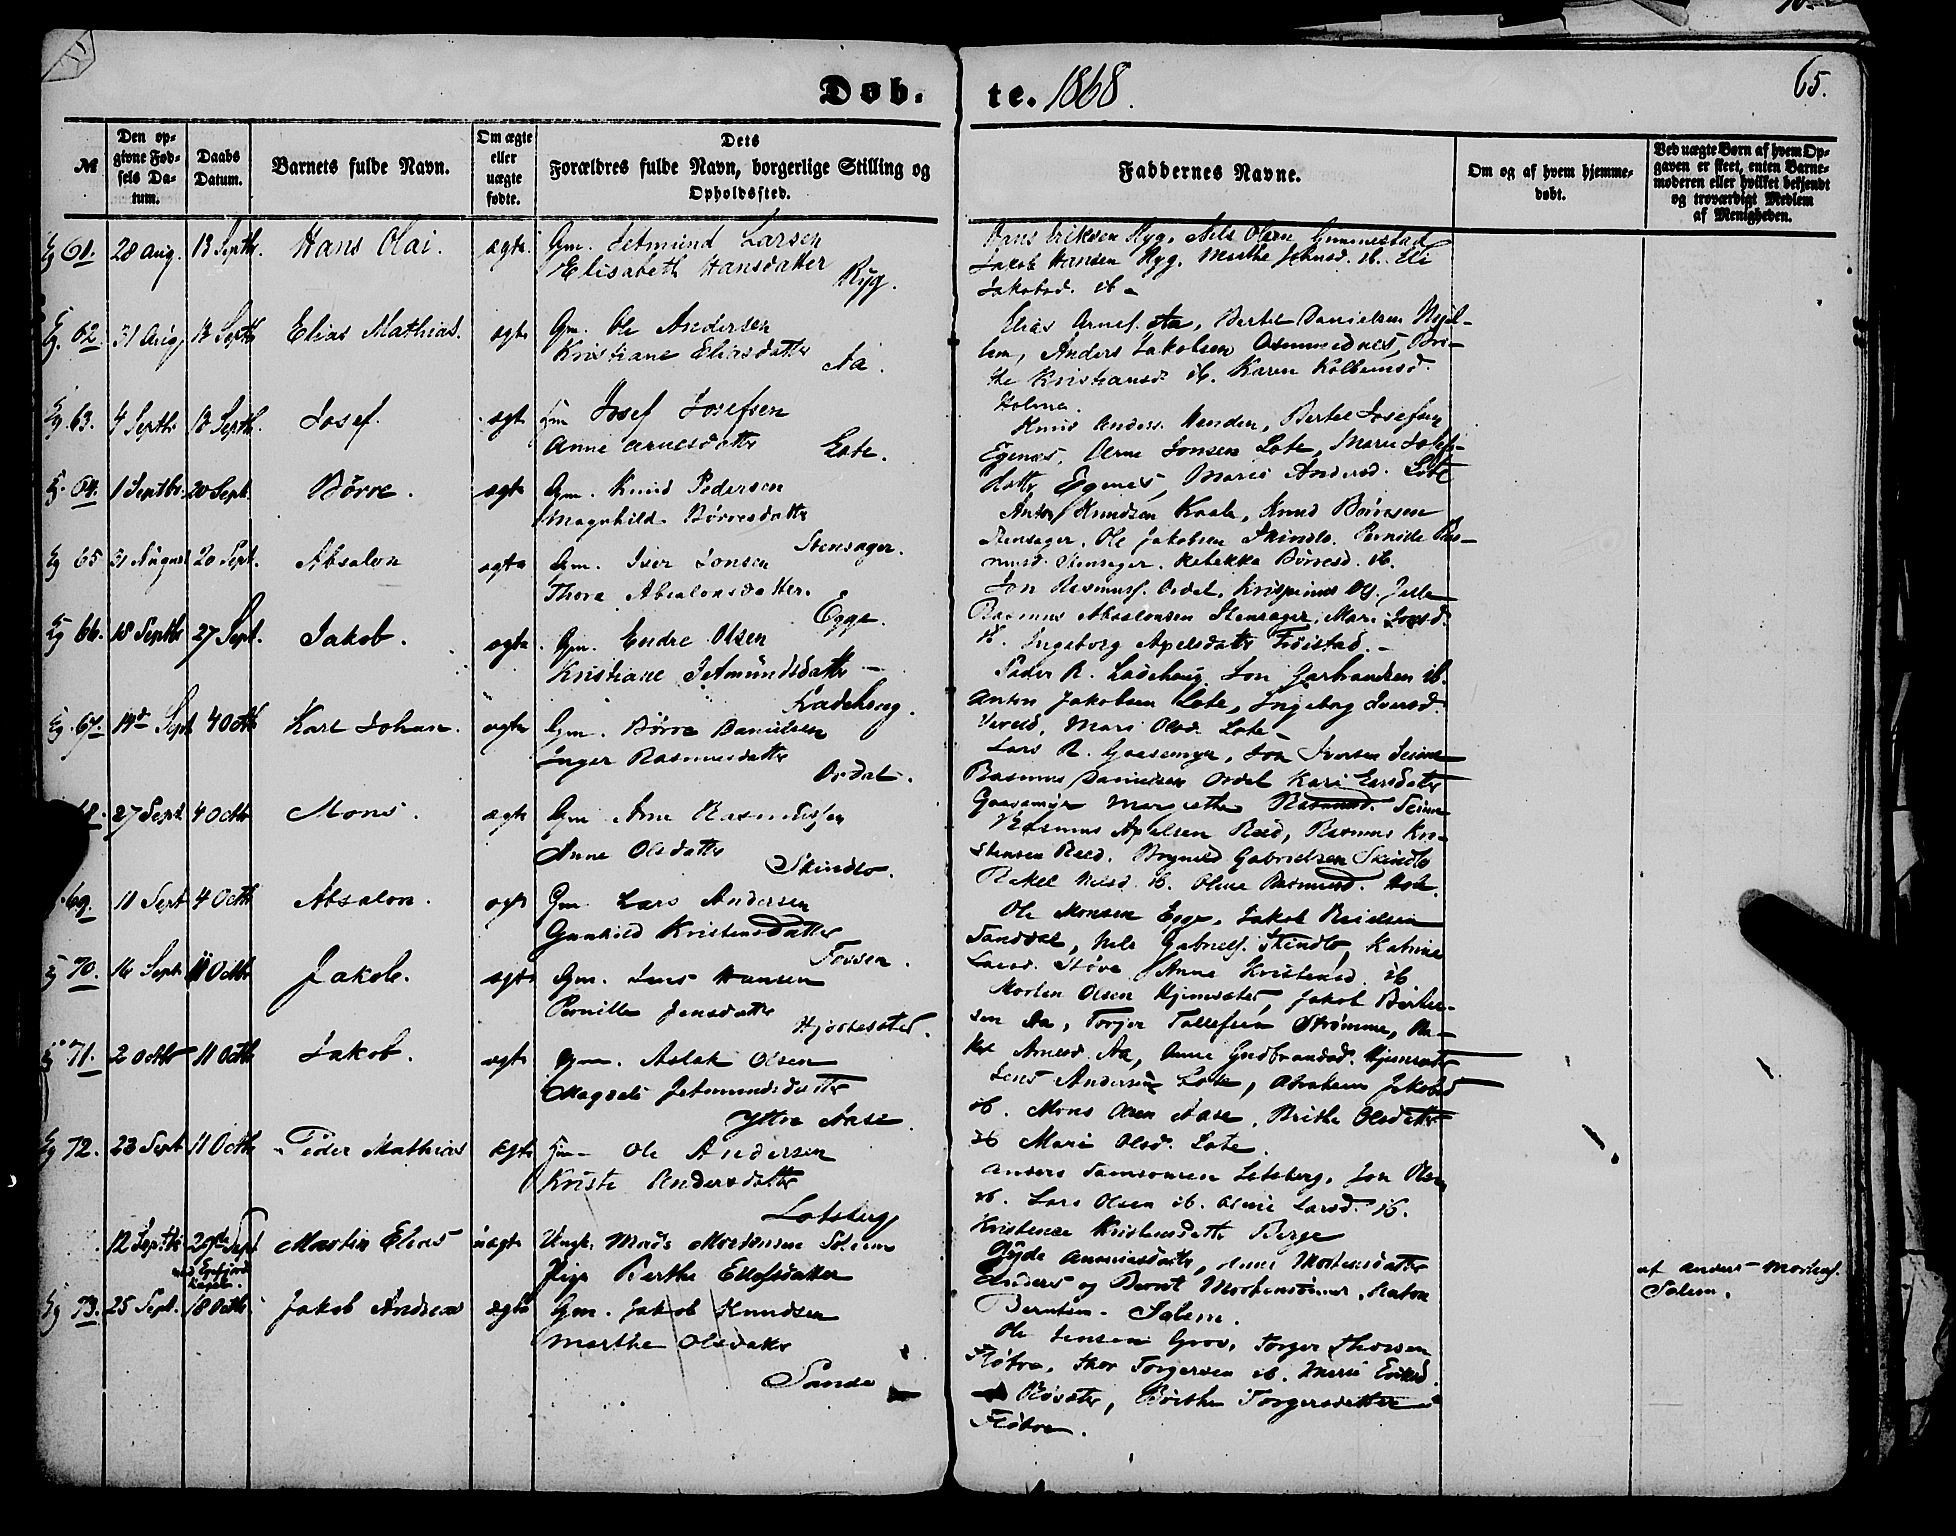 Døb.
te. 1868.
65.
№
Den op-
givne Fød-
sels Da-
tum.
Daabs
Datum.
Barnets fulde Navn.
Om ægte
eller
uægte
fødte.
Dets
Forældres fulde Navn, borgerlige Stilling og
Opholdssted.
Faddernes Navne.
Om og af hvem hjemme-
døbt.
Ved uægte Børn af hvem Op-
gaven er skeet, enten Barne-
moderen eller hvilket bekjendt
og troværdigt Medlem
af Menigheden.
Eg 61. 28 Aug. 13 Septb. Hans Olai. ægte Gm. Jetmund Larsen
Elisabeth Hansdatter
Ryg.
Hans Eriksen Ryg, Nils Olsen Gimmestad
Jakob Hansen Ryg, Marthe Johnsd. ib. Eli
Jakobsd. ib.
Eg. 62. 31 Aug. 13 Septb Elias Mathias. ægte Gm. Ole Andersen
Kristiane Eliasdatter
Aa.
Elias Arnes. Aa, Bertel Danielsen Hjel-
lem, Anders Jakobsen Osmundnes, Bri-
the Kristiansd. ib. Karen Kolbeinsd.
Holme.
Eg 63. 4 Septb 13 Septb. Josef. ægt Gm Josef Josefsen
Anne Arnesdatter
Lote.
Knud Anders. Henden, Bertel Josefsen
Egenes, Arne Jonsen Lote, Marie Josefs-
datter Egenes, Marie Andersd. Lote
Eg. 64. 1 Septbr. 20 Sept. Børre. ægt Gm. Knud Pedersen
Magnhild Børresdatter
Stensager.
Anton Knudsen Kaale, Knud Børresen
Stensager, Ole Jakobsen Skindlo. Pernille Ras-
musd. Stensager. Rebekka Børresd. ib.
Eg 65 31 August 20 Sept. Absalon ægte Gm. Iver Jonsen
Thora Absalonsdatter.
Egge.
Jon Rasmuss. Ordal, Krispinus Os. Jelle
Rasmus Absalonsen Stensager, Mari Jonsd.
ib. Ingeborg Apelsdatter Frøistad.
Eg 66. 18 Septb 27 Sept. Jakob. ægte Gm. Endre Olsen
Kristiane Jetmundsdatter
Ladehoug.
Peder R. Ladehoug, Jon Garbrandsen ib.
Anton Jakobsen Lote, Ingeborg Iversd.
Mari Olsd. Lote
Eg. 67. 19de Sept 4 Octb Karl Johan. ægte Gm. Børre Danielsen
Inger Rasmusdatter
Ordal.
Lars R. Gaasemyr, Jon Iversen Seime
Rasmus Danielsen Ordal Kari Larsdatter
Gaasemyr Margrethe Rasmusd. Seime
68. 27 Sept. 4 Octb Mons. ægte Gm Arne Rasmussen
Anne Olsdatter
Skindlo.
Rasmus Apelsen Reed, Rasmus Kri-
stensen Reed. Brynild Gabrielsen Skindlo
Rakel Nilsd. ib. Oline Rasmusd.
69. 11 Sept 4 Octb Absalon. ægt Gm. Lars Andersen
Gunhild Kristensdatter
Fossen.
Ole Monsen Egge, Jakob
Sanddal, Nils Gabriels. Skindlo, Katrine
Larsd. Støve Anne Kristensd. ib
Eg 70. 16 Sept. 11 Octb Jakob. ægte Gm. Jens Hansen
Pernille Jensdatter
Hjortesæter.
Morten Olsen Jakob Bertel-
sen Aa, Torger Tollefsen Strømme, Ra-
kel Arnesd. Aa, Anne Gudbrandsd.
Eg 71. 2 Octb 11 Octb Jakob. ægte Gm. Aslak Olsen
Magreli Jetmundsdatter
Ytre Aase.
Jens Andersen Lote, Abraham Jakobs
ib. Mons Olsen Aase, Brithe Olsdatter
ib Mari Olsd. Lote.
Eg 72. 23 Sept 11 Octb Peder Mathias ægte Gm Ole Andersen
Kristi Andersdatter
Lotsberg
Anders Samsonsen Lotsberg, Jon Olsen
ib. Lars Olsen ib. Oline Larsd. ib.
Kristense Kristensdatter Berge
12 Septb 20de Sept Martin Elias uægte Ungk. Mads Mortensen Solem
ved Gjefjord
Kapel.
Pige Berthe Ellefsdatter
Gyde Ananiasdatter, Mortensdatter
Anders og Bernt Mortensønner, Anton
Berntsen - Solem.
af Anders Mortens.
Solem.
Eg 73. 25 Sept. 18 Octb Jakob Andreas ægte Gm. Jakob Knudsen
Marthe Olsdatter
Sande
Ole Jensen Grov, Torger Thorsen
Fløtre, Thor Torgersen ib. Marie Eriksd.
Røsæter, Brithe Torgersdatter
Fløtre.